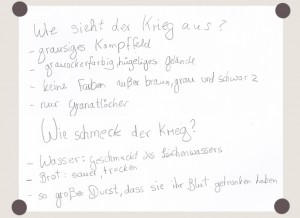 Wie sieht der Krieg aus?
- grausiges Kampffeld
- grauockerfarbig, hügeliges Gelände
- keine Farben außer braun, grau und schwarz
- nur Granatlöcher
Wie schmeckt der Krieg?
- Wasser: Geschmack des Leichenwassers
- Brot: sauer, trocken
- so große Durst, dass sie ihr Blut getrunken haben